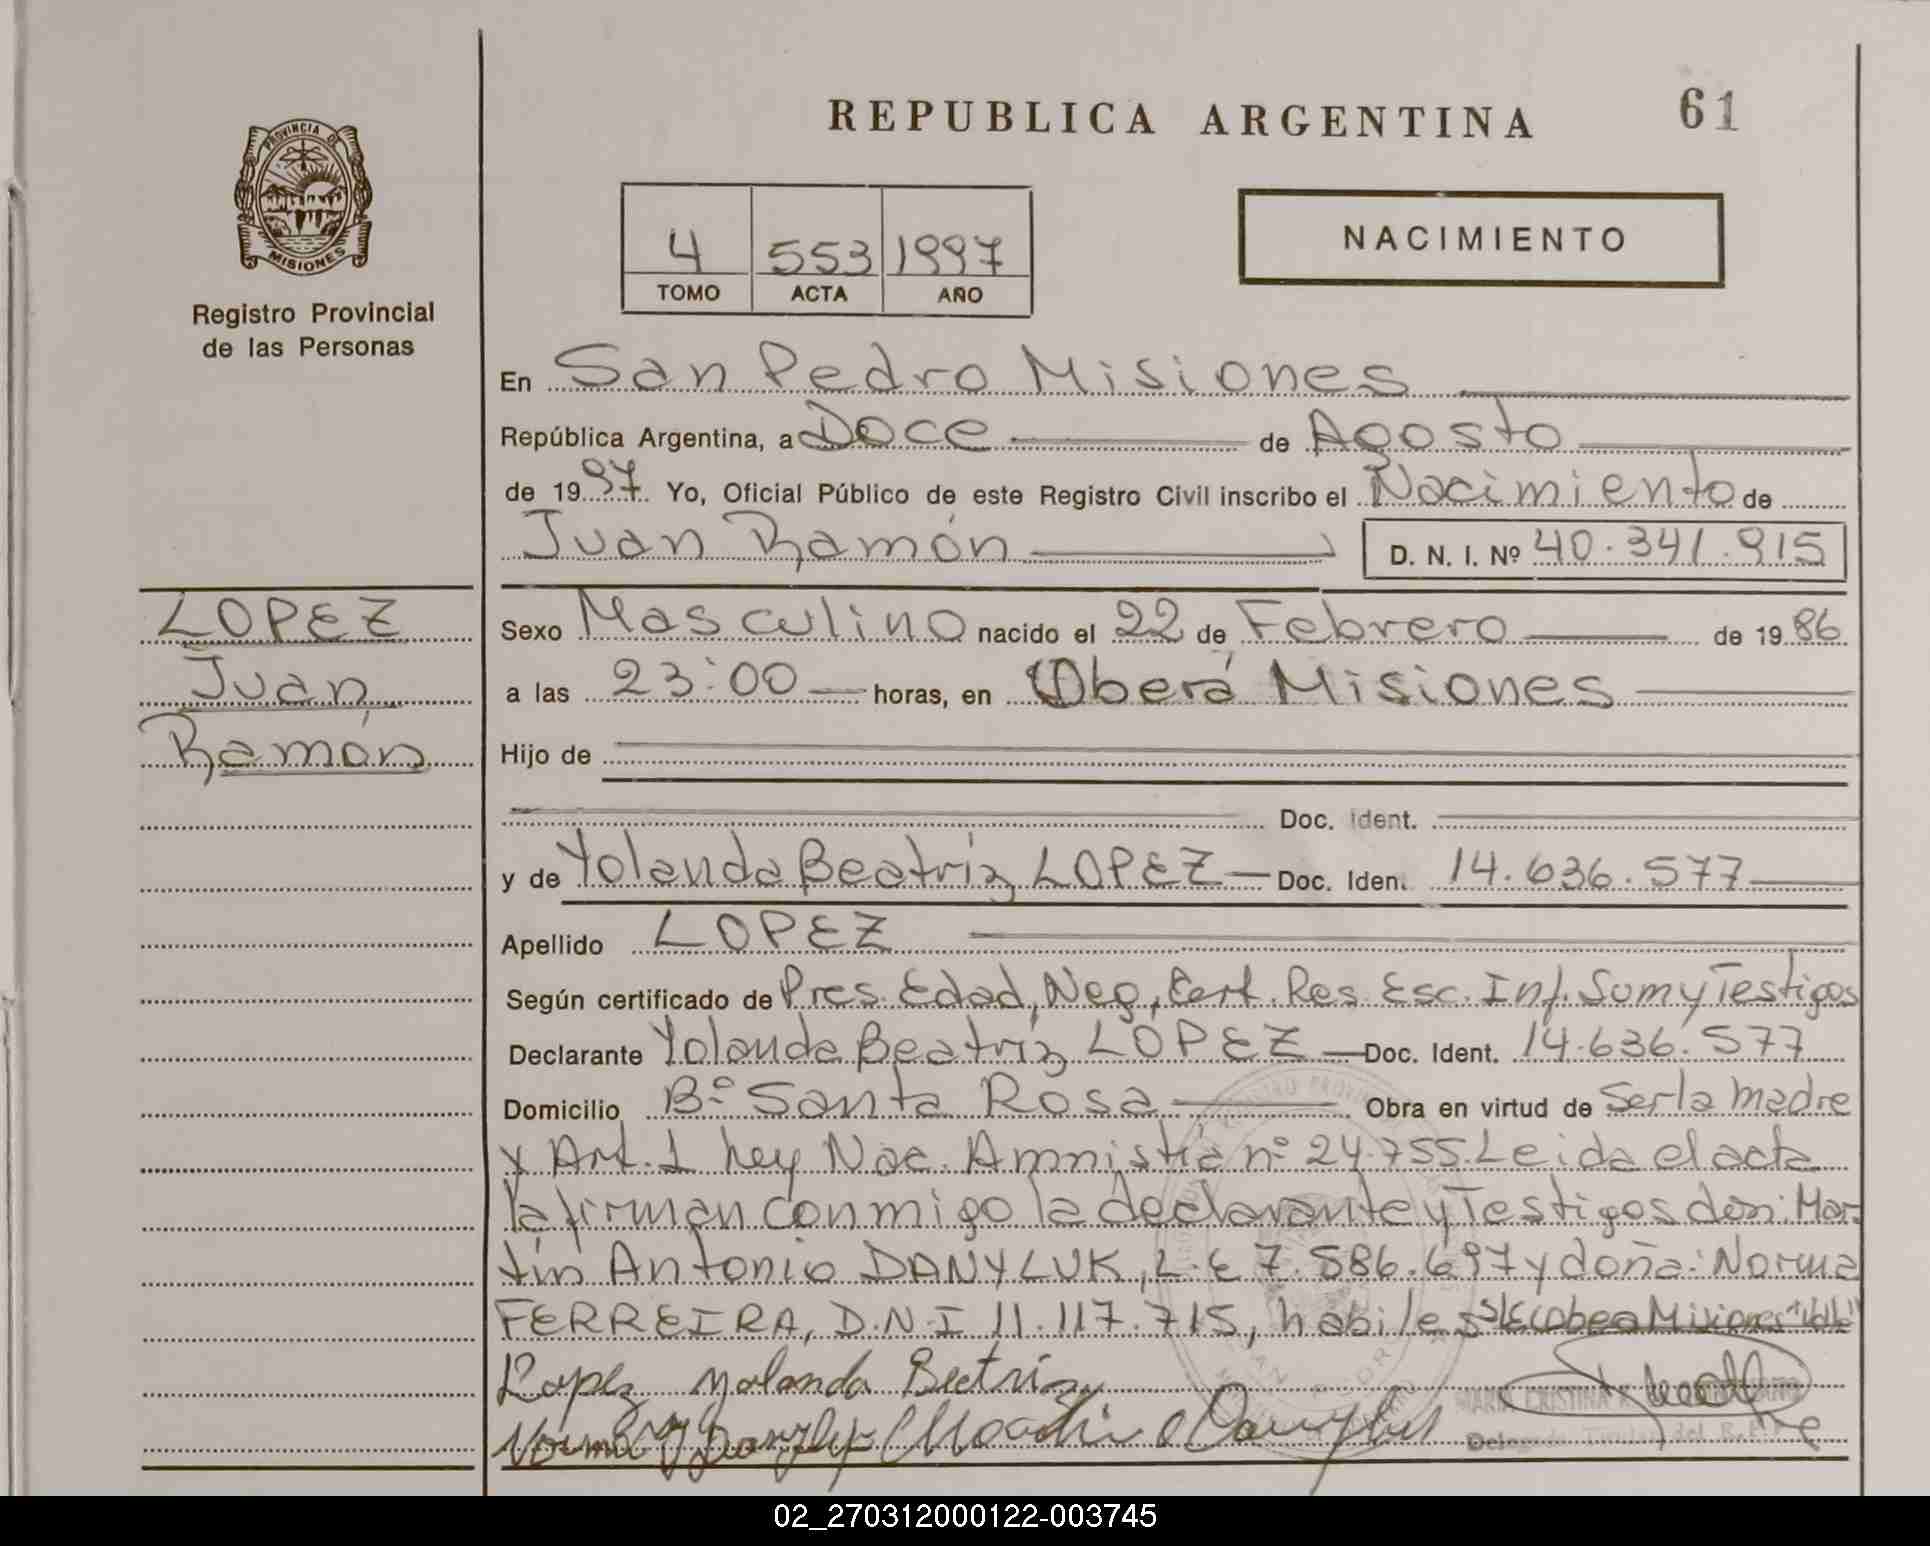 REPUBLICA ARGENTINA
61
PROVINCIA DE
MISIONES
Registro Provincial
de las Personas
4 553 1997
TOMO ACTA AÑO
NACIMIENTO
En San Pedro Misiones
República Argentina, a Doce de Agosto
de 1997. Yo, Oficial Público de este Registro Civil inscribo el Nacimiento de
Juan Ramón D. N. I. Nº 40.341.915
LOPEZ
Juan
Ramón
Sexo Masculino nacido el 22 de Febrero de 1986
a las 23:00 horas, en Oberá Misiones
Hijo de
Doc. Ident.
y de Yolanda Beatríz LOPEZ Doc. Iden. 14.636.577
Apellido LOPEZ
Según certificado de Pres. Edad, Neg, Cert. Res. Esc. Inf. Sum y Testigos
Declarante Yolanda Beatríz LOPEZ Doc. Ident. 14.636.577
Domicilio Bº Santa Rosa Obra en virtud de Ser la madre
y Art. 1 Ley Nac. Amnistía nº 24.755. Leida el acta
la firman conmigo la declarante y Testigos don: Mar-
tín Antonio DANYLUK, L.E 7.586.697 y doña: Norma
FERREIRA, D.N.I 11.117.715, habiles
Lopez Yolanda Beetriz
02_270312000122-003745